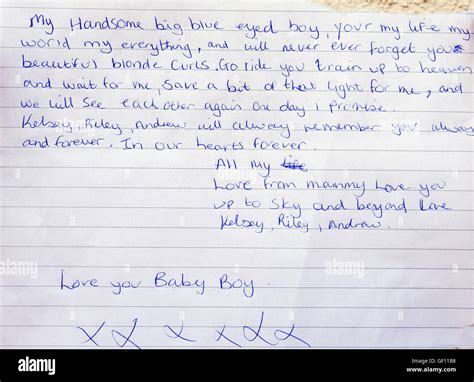 My Handsome big blue eyed boy, your my life my
world my everything, and will never ever forget you
beautiful blonde curls. Go ride you train up to heaven
and wait for me, save a bit of that light for me, and
we will see each other again one day I promise.
Kelsey, Riley, Andrew will alway remember you always
and forever. In our hearts forever.
All my life
Love from mammy Love you
up to sky and beyond love
Kelsey, Riley, Andrew.
Love you Baby Boy.
x x x x x x
alamy
Image ID: GF11B8
www.alamy.com